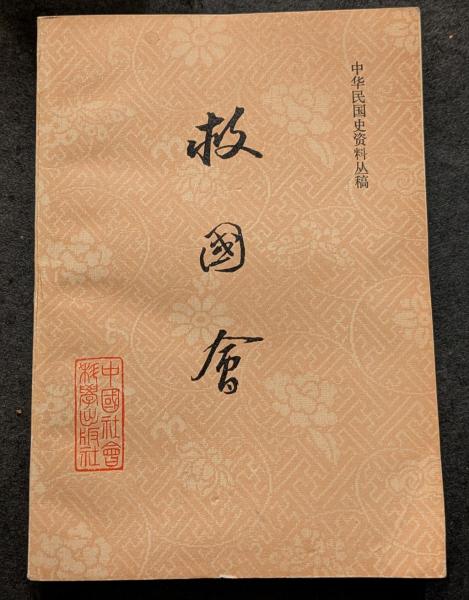 中华民国史资料丛稿
救國會
中國社會
科學出版社